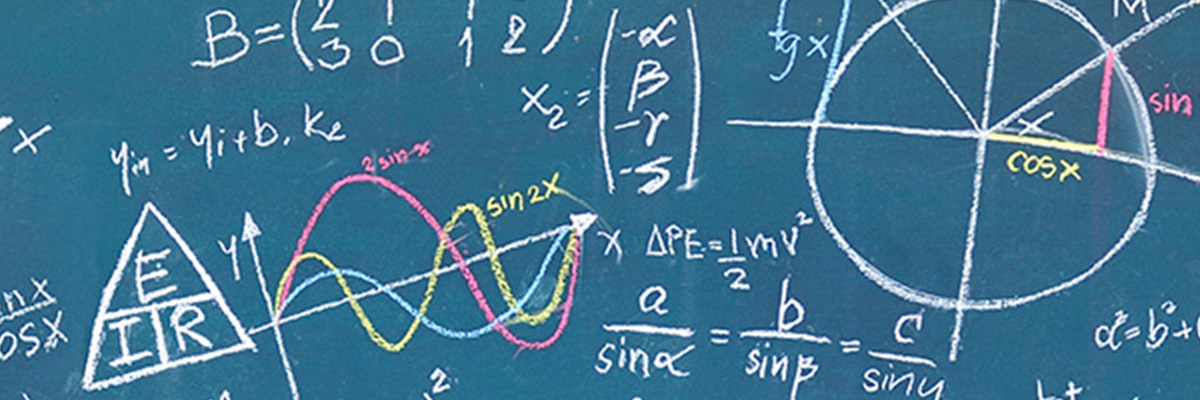 B = (2 1 1
3 0 1 2)
x₂ = (-α
β
-γ
-5)
tg x
M
sin
x
cosx
x
yᵢₙ = yᵢ+b.
2 sin x
sin 2X
E
I R
y
x
ΔPE = 1/2 mv²
a/sinα = b/sinβ = c/sin
nx
osx
a² = b² +
2